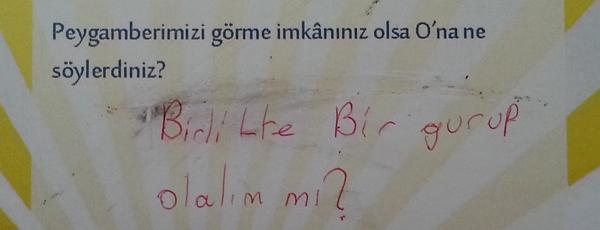 Peygamberimizi görme imkânınız olsa O'na ne
söylerdiniz?
Birlikte Bir gurup
olalım mı?